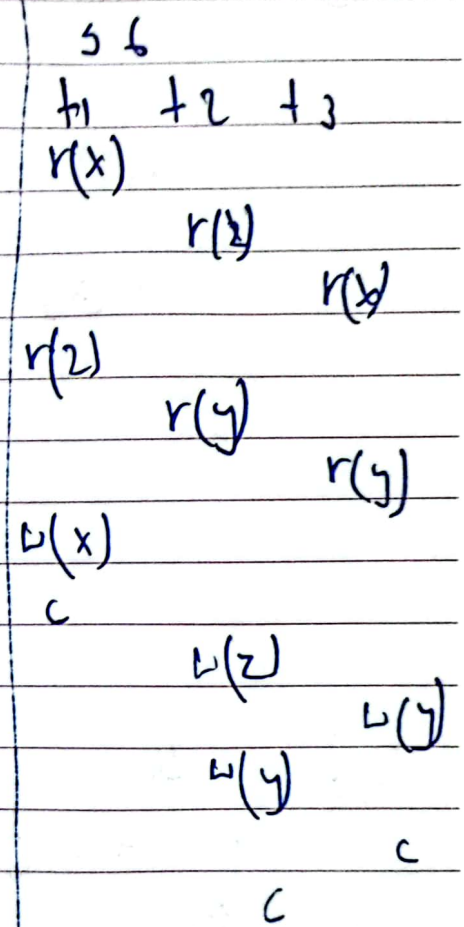 s 6
t1 t2 t3
r(x)
r(z)
r(x)
r(z)
r(y)
r(y)
w(x)
c
w(z)
w(y)
w(y)
c
c